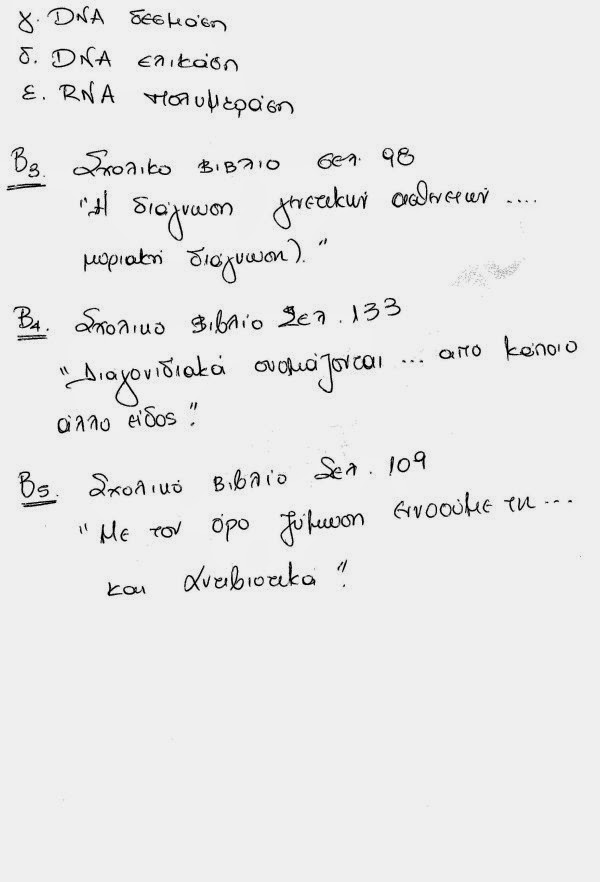 γ. DNA δεσμάση
δ. DNA ελικάση
ε. RNA πολυμεράση
Β3. Σχολικό βιβλίο σελ. 98
"Η διάγνωση γενετικών ασθενειών ....
μοριακή διάγνωση)."
Β4. Σχολικό Βιβλίο Σελ. 133
"Διαγονιδιακά ονομάζονται ... από κάποιο
άλλο είδος".
Β5. Σχολικό Βιβλίο Σελ. 109
"Με τον όρο ζύμωση εννοούμε τη ...
και αντιβιοτικά".